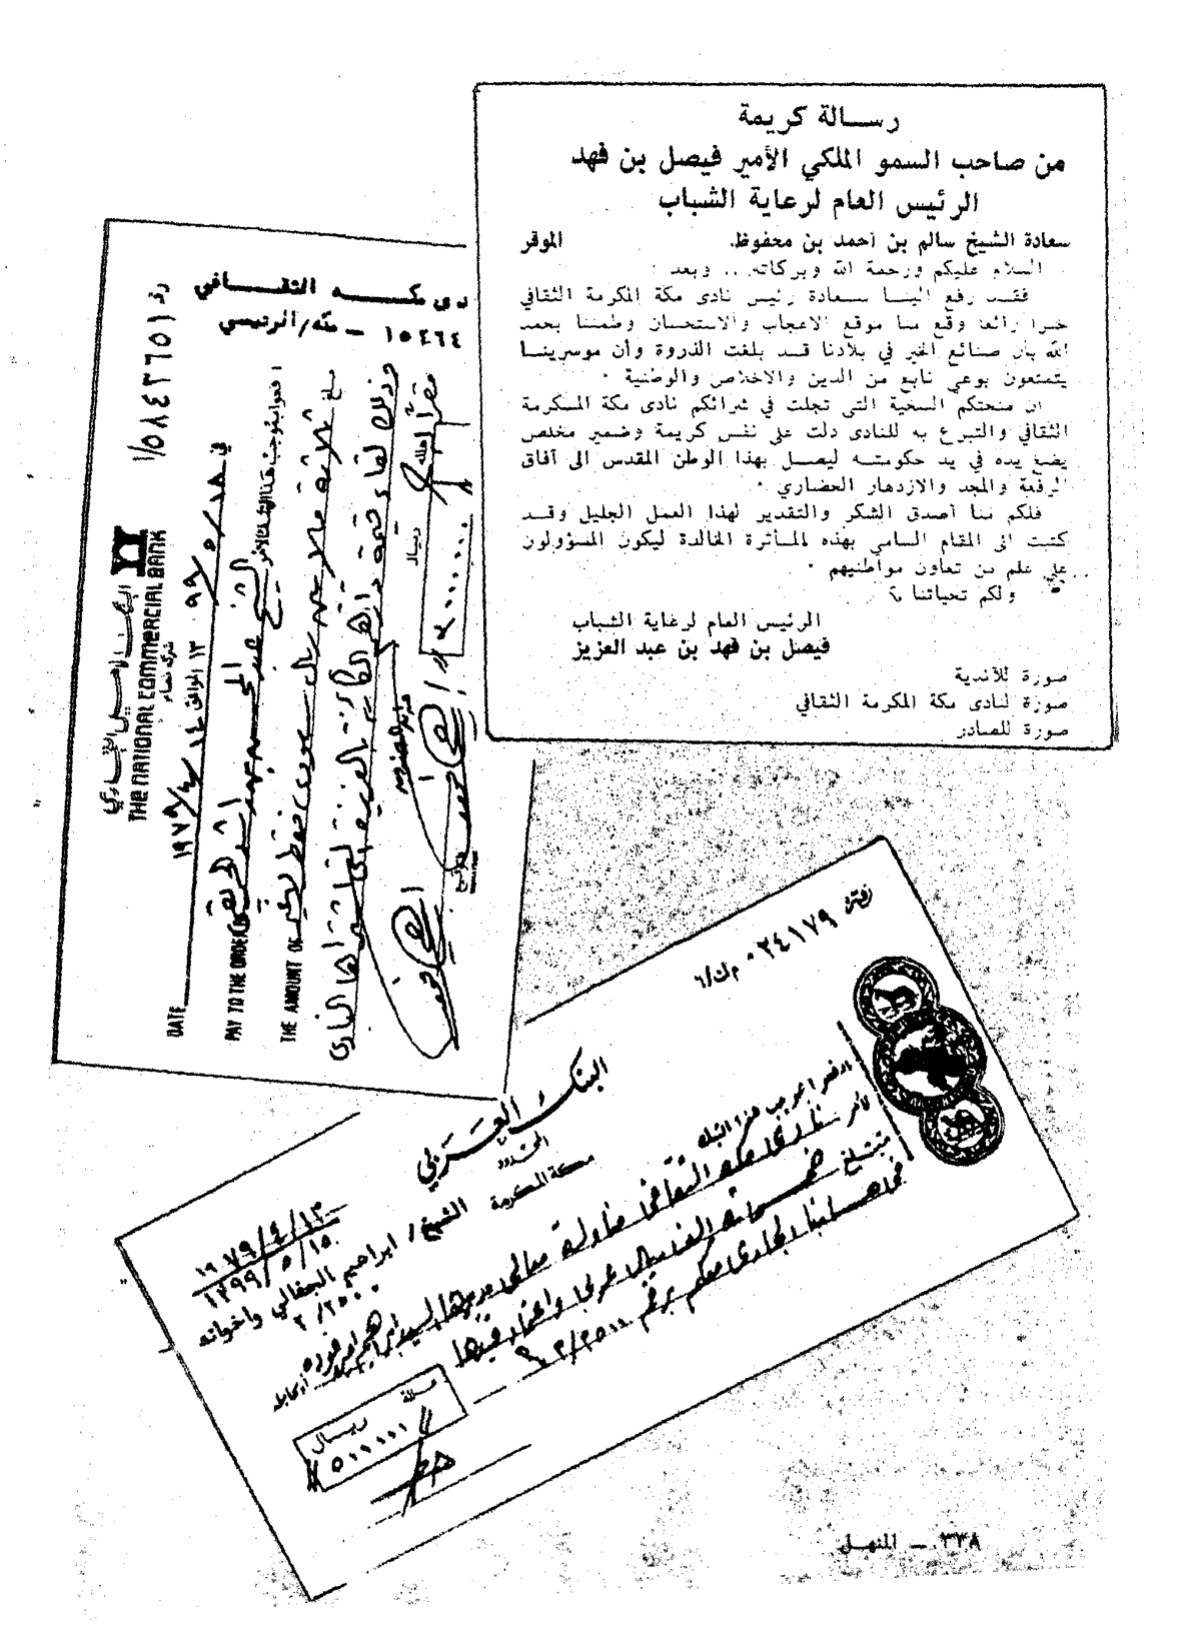 رسالة كريمة
من صاحب السمو الملكي الأمير فيصل بن فهد
الرئيس العام لرعاية الشباب
سعادة الشيخ سالم بن أحمد بن محفوظ. الموقر
السلام عليكم ورحمة الله وبركاته .. وبعد :
فقد رفع الينا سعادة رئيس نادى مكة المكرمة الثقافي
خبرا رائعا وقع منا موقع الاعجاب والاستحسان وطمننا بحمد
الله بأن صنائع الخير في بلادنا قد بلغت الذروة وأن موسرينا
يتمتعون بوعي نابع من الدين والاخلاص والوطنية .
ان منحتكم السخية التى تجلت في شرائكم نادى مكة المكرمة
الثقافي والتبرع به للنادى دلت على نفس كريمة وضمير مخلص
يضع يده في يد حكومته ليصل بهذا الوطن المقدس الى آفاق
الرفعة والمجد والازدهار الحضاري .
فلكم منا أصدق الشكر والتقدير لهذا العمل الجليل وقد
كتبت الى المقام السامي بهذه المأثرة الخالدة ليكون المسؤولون
على علم من تعاون مواطنيهم .
ولكم تحياتنا
الرئيس العام لرعاية الشباب
فيصل بن فهد بن عبد العزيز
صورة للأندية
صورة لنادى مكة المكرمة الثقافي
صورة للصادر
دى مكه الثقافي
١٥٤٦٤ – مكه/الرئيسي
رقم ١/٥٨٤٣٦٥١
THE NATIONAL COMMERCIAL BANK
DATE ١٩٧٩/٤/١٤ الموافق ١٣٩٩/٥/١٨
PAY TO THE ORDER OF
THE AMOUNT OF ثلاثة ملايين ريال سعودي فقط
ريال
٠٢٤١٧٩
م ك/٦
البنك العربي
المحدود
مكة المكرمة
١٩٧٩/٤/١٣
١٣٩٩/٥/١٥
الشيخ/ ابراهيم الجفالي واخوانه
٢/٢٥٠٠
ادفعوا بموجب هذا الشيك
لأمر نادى مكه الثقافى
بمبلغ خمسمائة الف ريال عربى
ريال
٣٣٨ – المنهل